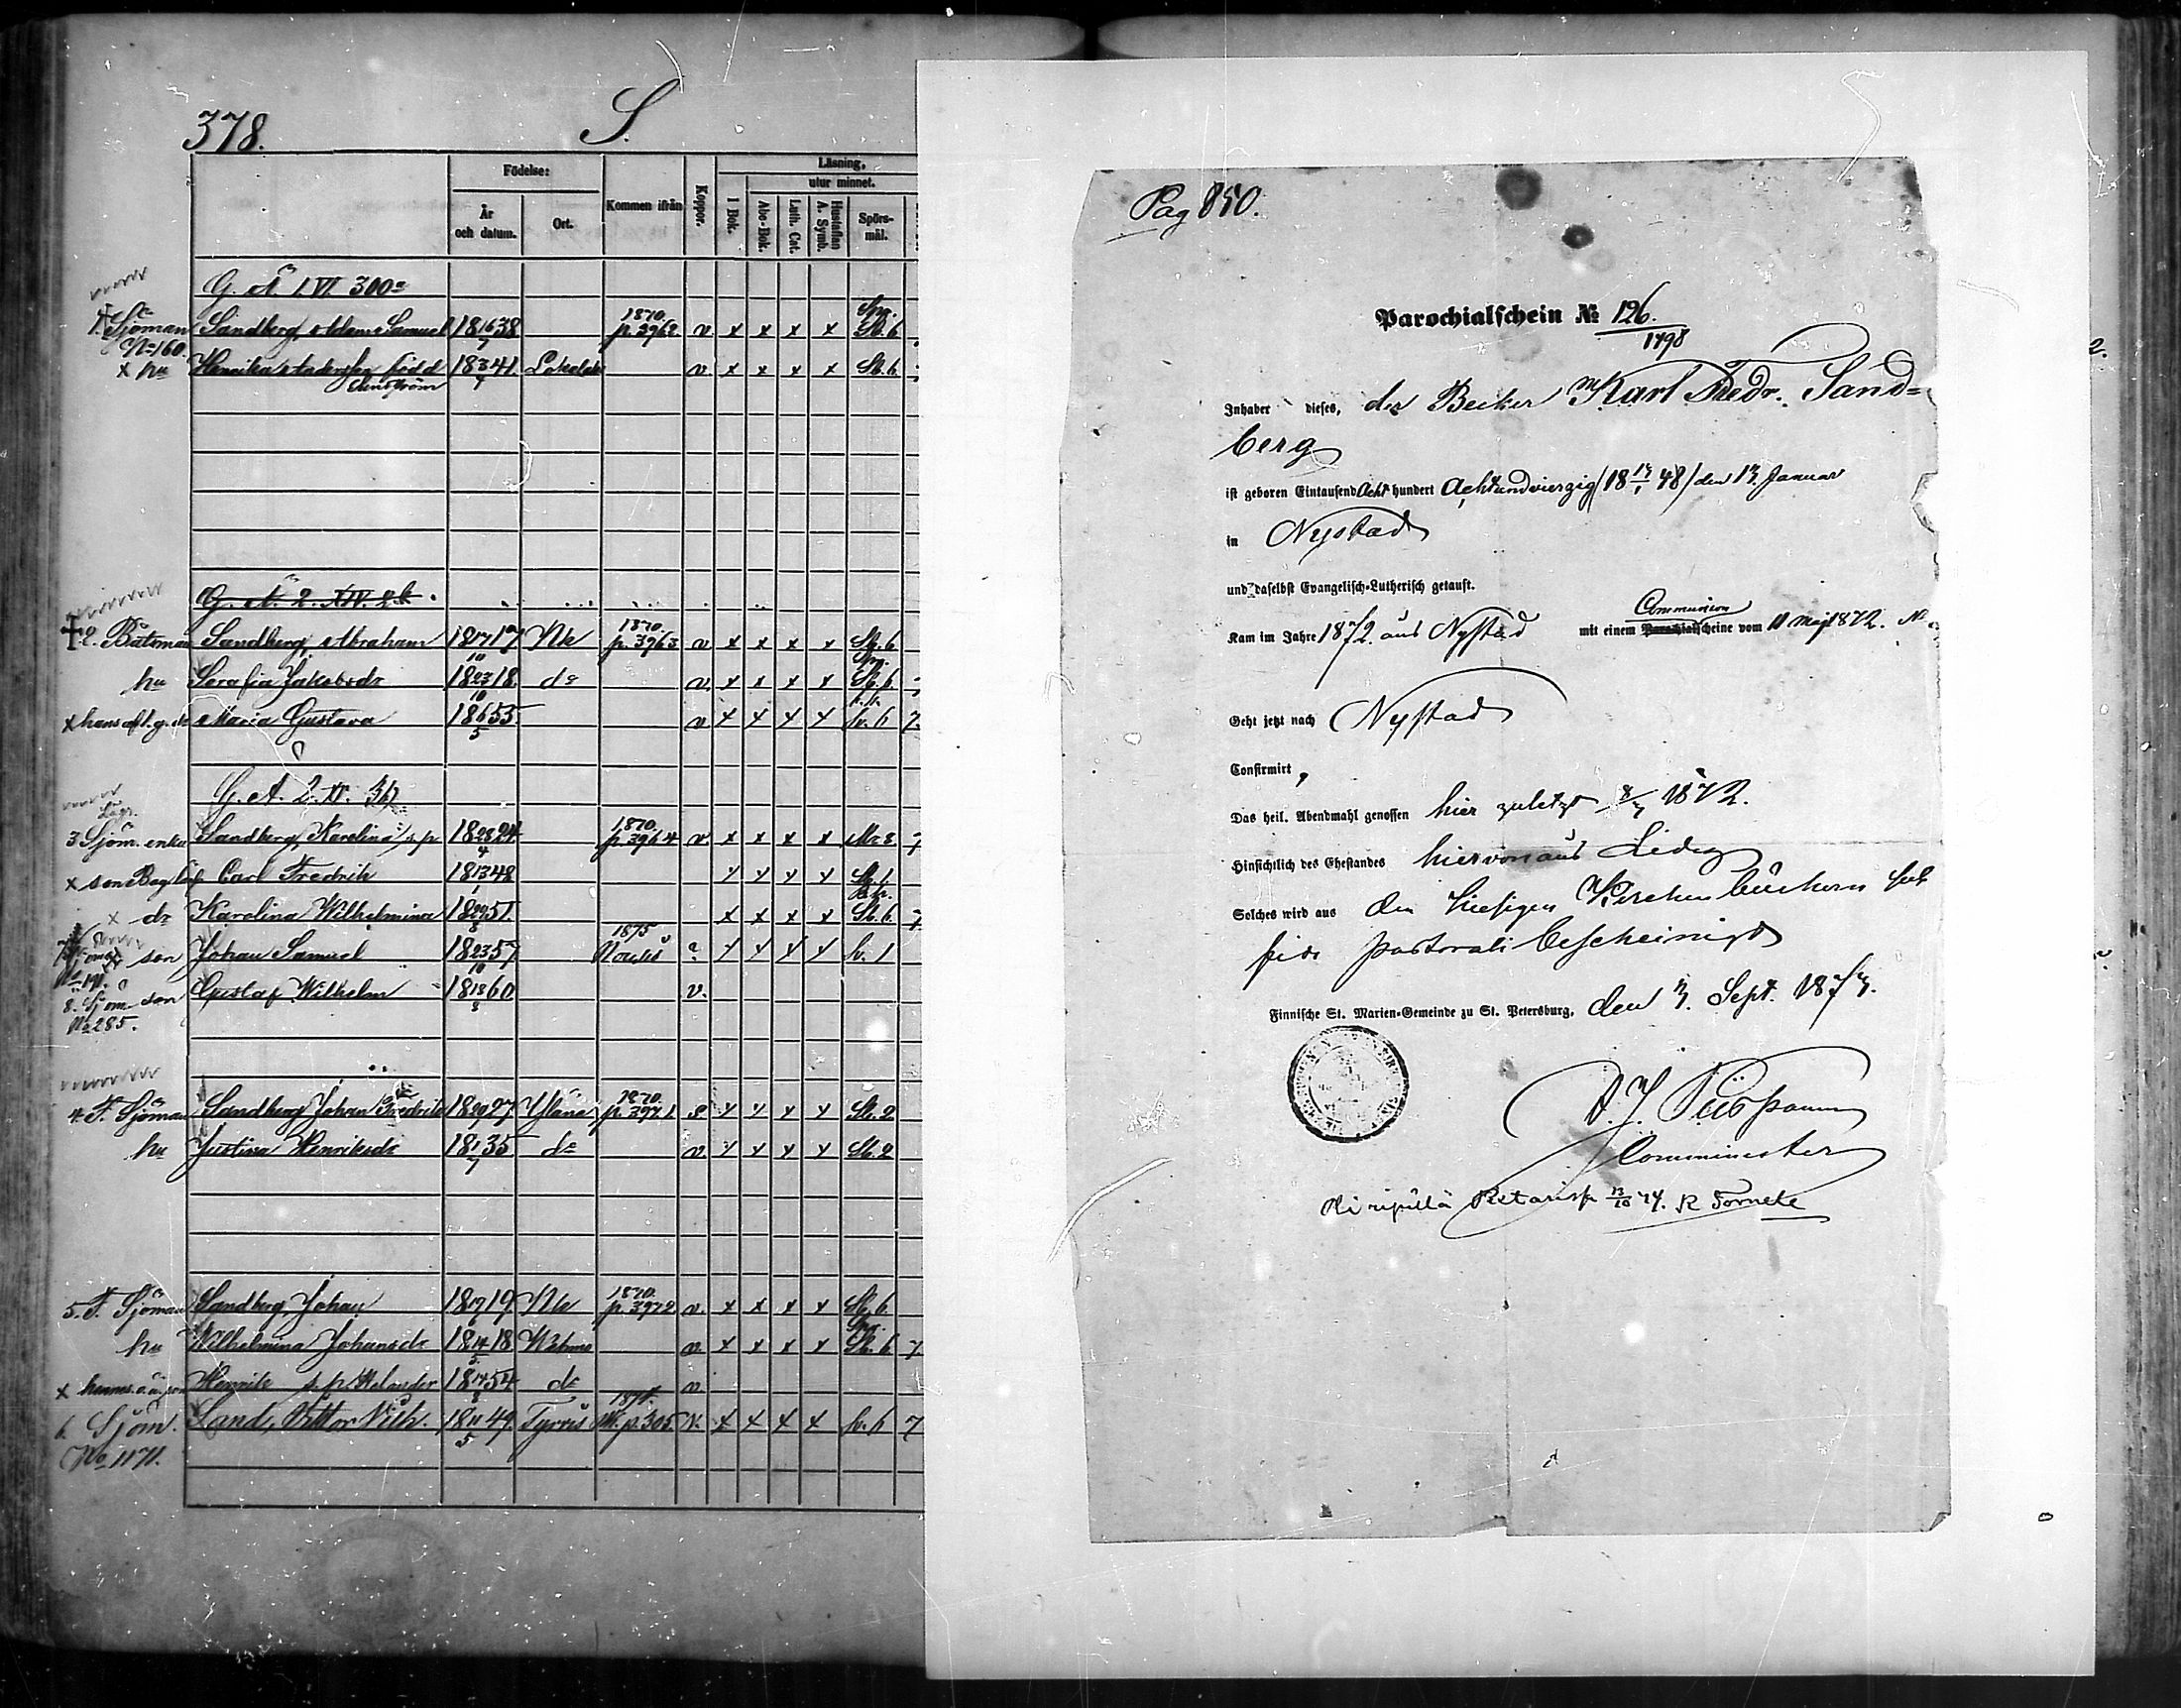 378.
S.
Födelse:
Läsning,
utur minnet.
År och datum.
Ort.
Kommen ifrån
Koppor.
I Bok.
Abc-Bok.
Luth. Cat.
Hustaflan A. Symb.
Spörs-mål.
G. A. I. VI. 300
1. Sjöman Sandberg, Adam Samuel 18 16/7 38 1870. p. 3962 v x x x x Spr. St. 6
No 160.
x hu Henrika Andersson född 18 3/4 41. Lokalaks v. x x x x St. 6
G. A. 2. XIV. 2
2. Båtsman Sandberg, Abraham 18 17/10 17 Nk 1870. p. 3963 v x x x x St. 6
hu Serafia Jakobsdr 18 23/10 18. do v. x x x x
x Maria Gustava 18 6/5 55 v x x x x h. 6 7.
G. A. 2. 36
3 Sjöm. enka Sandberg, Karolina s. p 18 28/4 24 1870. p. 3964 v. x x x x
x son Carl Fredrik 18 13/1 48 x x x x
x dr Karolina Wilhelmina 51. x x x x St. 6
x son Johan Samuel 18 23/10 57 1875 ? x x x x h. 1
8. Sjöm. son Gustaf Wilhelm 18 18/8 60 v.
No 285.
4. F. Sjöman Sandberg Johan Fredrik 18 20/9 27 Yläne 1870. p. 3971 x x x x St. 2
hu Justina Henriksdr 18 1/7 35 do v. x x x x St. 2
5. F. Sjöman Sandberg, Johan 19 Nk 1870. p. 3972 v. x x x x St. 6
hu Wilhelmina Johansdr 18 14/5 18 Wehmo v. x x x x St. 6 7.
x Henrik s. p. Helander 18 17/8 54 do v
6. Sjöm. Sand, Viktor Vilh. 18 11/5 49. Tyrvis p. 305 v. x x x x h. 6 7
No 1171.
Pag 850.
Parochialschein № 126.
1798
Inhaber dieses, der Becker Karl Fredr. Sand=
berg
ist geboren Eintausend Acht hundert Achtundvierzig (18 13/1 48) den 13. Januar
in Nystad
und daselbst Evangelisch-Lutherisch getauft.
Communion
Kam im Jahre 1872 aus Nystad mit einem Parochialscheine vom 11 Maj 1872. №
Geht jetzt nach Nystad
Confirmirt,
Das heil. Abendmahl genossen hier zuletzt 1872.
Hinsichtlich des Ehestandes hiervonaus Ledig
Solches wird aus den hiesigen Kirchenbüchern sub
fide pastorali bescheinigt
Finnische St. Marien-Gemeinde zu St. Petersburg, den 3. Sept. 1873.
Comminister